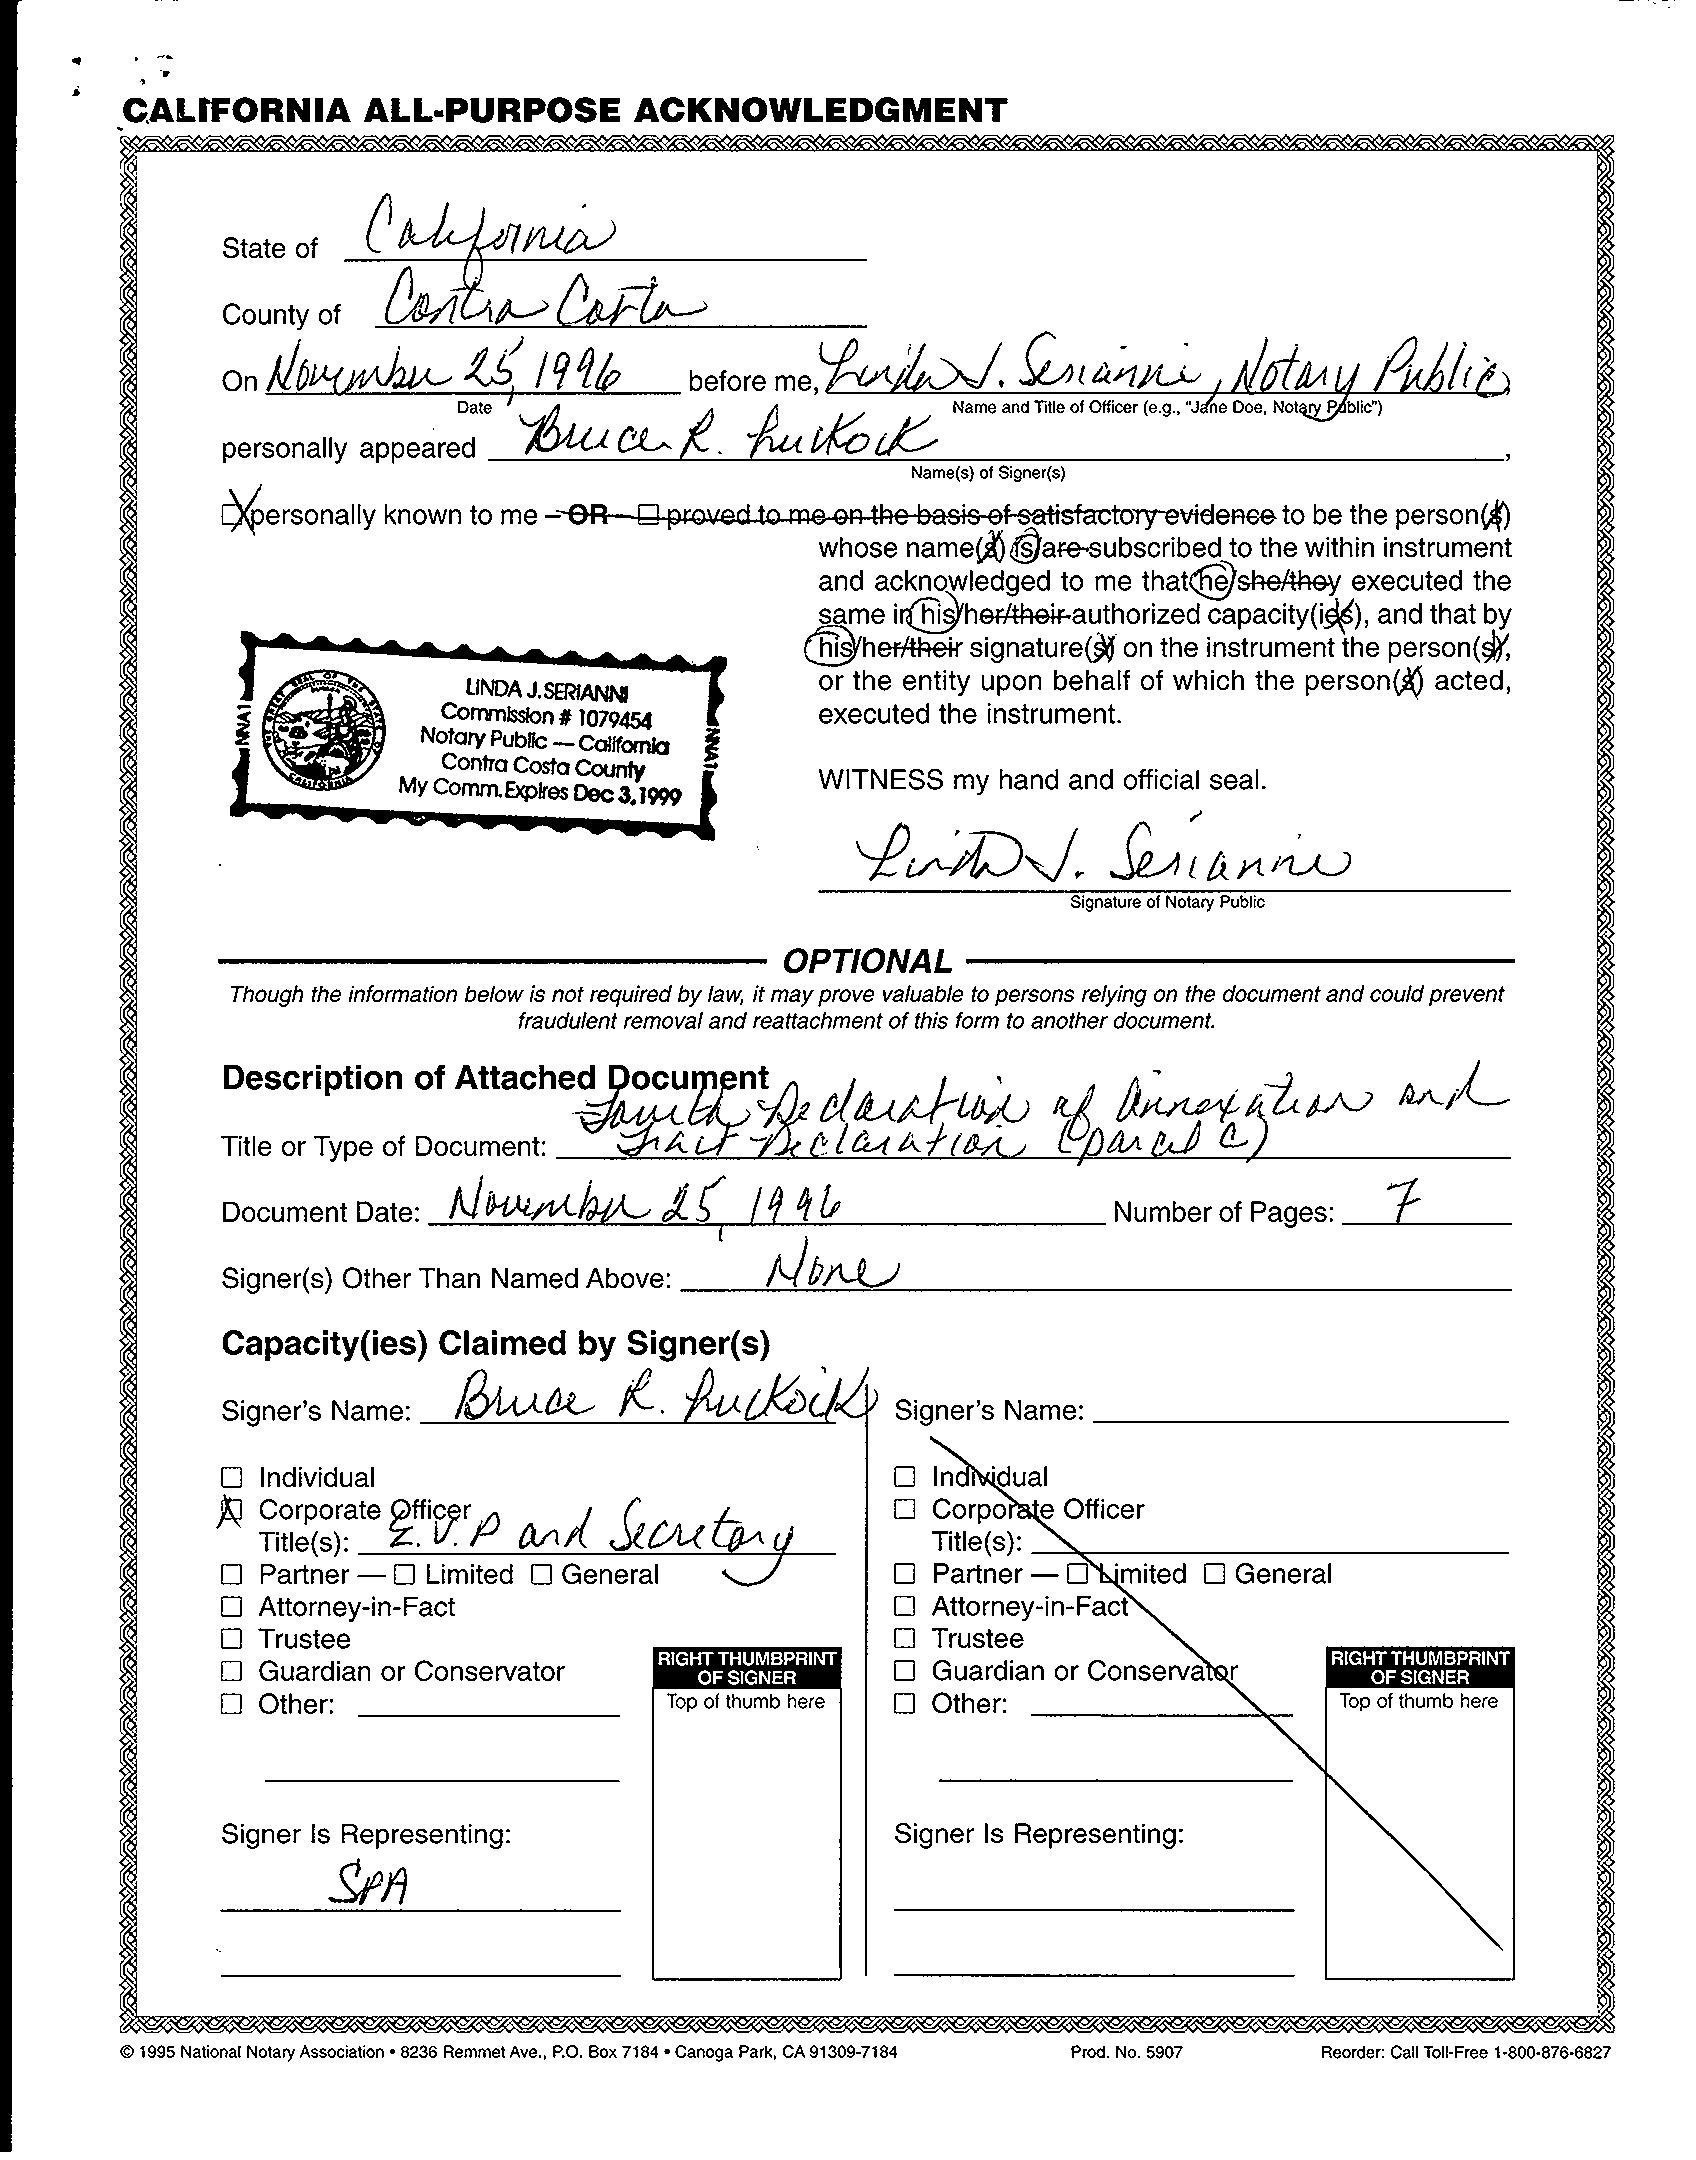 CALIFORNIA ALL-PURPOSE ACKNOWLEDGMENT
State of California
County of Contra Costa
On November 25, 1996 before me, Linda J. Serianni, Notary Public,
Date Name and Title of Officer (e.g., "Jane Doe, Notary Public")
personally appeared Bruce R. Luckock,
Name(s) of Signer(s)
☒ personally known to me – OR – ☐ proved to me on the basis of satisfactory evidence to be the person(s)
whose name(s) is/are subscribed to the within instrument
and acknowledged to me that he/she/they executed the
same in his/her/their authorized capacity(ies), and that by
his/her/their signature(s) on the instrument the person(s),
or the entity upon behalf of which the person(s) acted,
executed the instrument.
LINDA J. SERIANNI
Commission # 1079454
Notary Public — California
Contra Costa County
My Comm. Expires Dec 3, 1999
NNA1
NNA1
SEAL OF THE STATE OF CALIFORNIA
WITNESS my hand and official seal.
Linda J. Serianni
Signature of Notary Public
OPTIONAL
Though the information below is not required by law, it may prove valuable to persons relying on the document and could prevent
fraudulent removal and reattachment of this form to another document.
Description of Attached Document
Fourth Declaration of Annexation and
Title or Type of Document: Tract Declaration (parcel C)
Document Date: November 25, 1996 Number of Pages: 7
Signer(s) Other Than Named Above: None
Capacity(ies) Claimed by Signer(s)
Signer's Name: Bruce R. Luckock
☐ Individual
☒ Corporate Officer
Title(s): E.V.P and Secretary
☐ Partner — ☐ Limited ☐ General
☐ Attorney-in-Fact
☐ Trustee
☐ Guardian or Conservator
☐ Other:
RIGHT THUMBPRINT
OF SIGNER
Top of thumb here
Signer Is Representing:
SPA
Signer's Name:
☐ Individual
☐ Corporate Officer
Title(s):
☐ Partner — ☐ Limited ☐ General
☐ Attorney-in-Fact
☐ Trustee
☐ Guardian or Conservator
☐ Other:
RIGHT THUMBPRINT
OF SIGNER
Top of thumb here
Signer Is Representing:
© 1995 National Notary Association • 8236 Remmet Ave., P.O. Box 7184 • Canoga Park, CA 91309-7184 Prod. No. 5907 Reorder: Call Toll-Free 1-800-876-6827